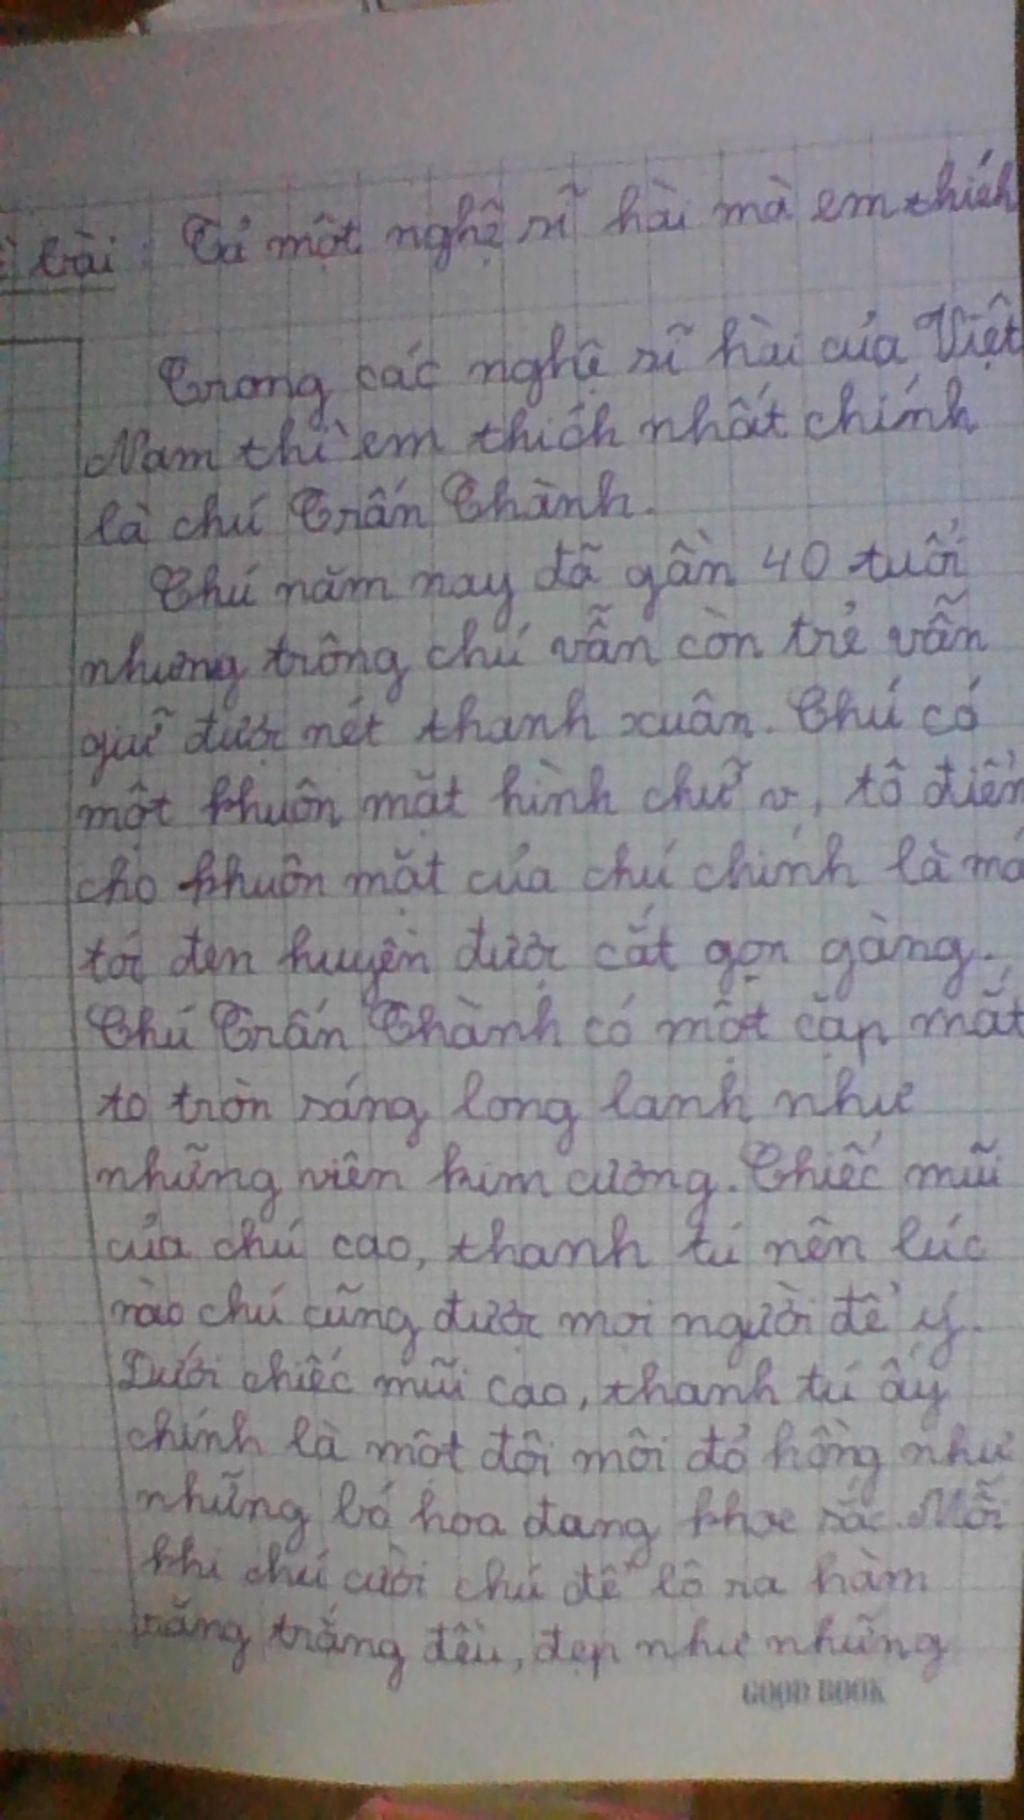 bài: Tả một nghệ sĩ hài mà em thích
Trong các nghệ sĩ hài của Việt
Nam thì em thích nhất chính
là chú Trấn Thành.
Chú năm nay đã gần 40 tuổi
nhưng trông chú vẫn còn trẻ vẫn
giữ được nét thanh xuân. Chú có
một khuôn mặt hình chữ v, tô điểm
cho khuôn mặt của chú chính là má
tóc đen huyền được cắt gọn gàng.
Chú Trấn Thành có một cặp mắt
to tròn sáng long lanh như
những viên kim cương. Chiếc mũi
của chú cao, thanh tú nên lúc
nào chú cũng được mọi người để ý.
Dưới chiếc mũi cao, thanh tú ấy
chính là một đôi môi đỏ hồng như
những bó hoa đang khoe sắc. Mỗi
khi chú cười chú để lộ ra hàm
răng trắng đều, đẹp như những
GOOD BOOK